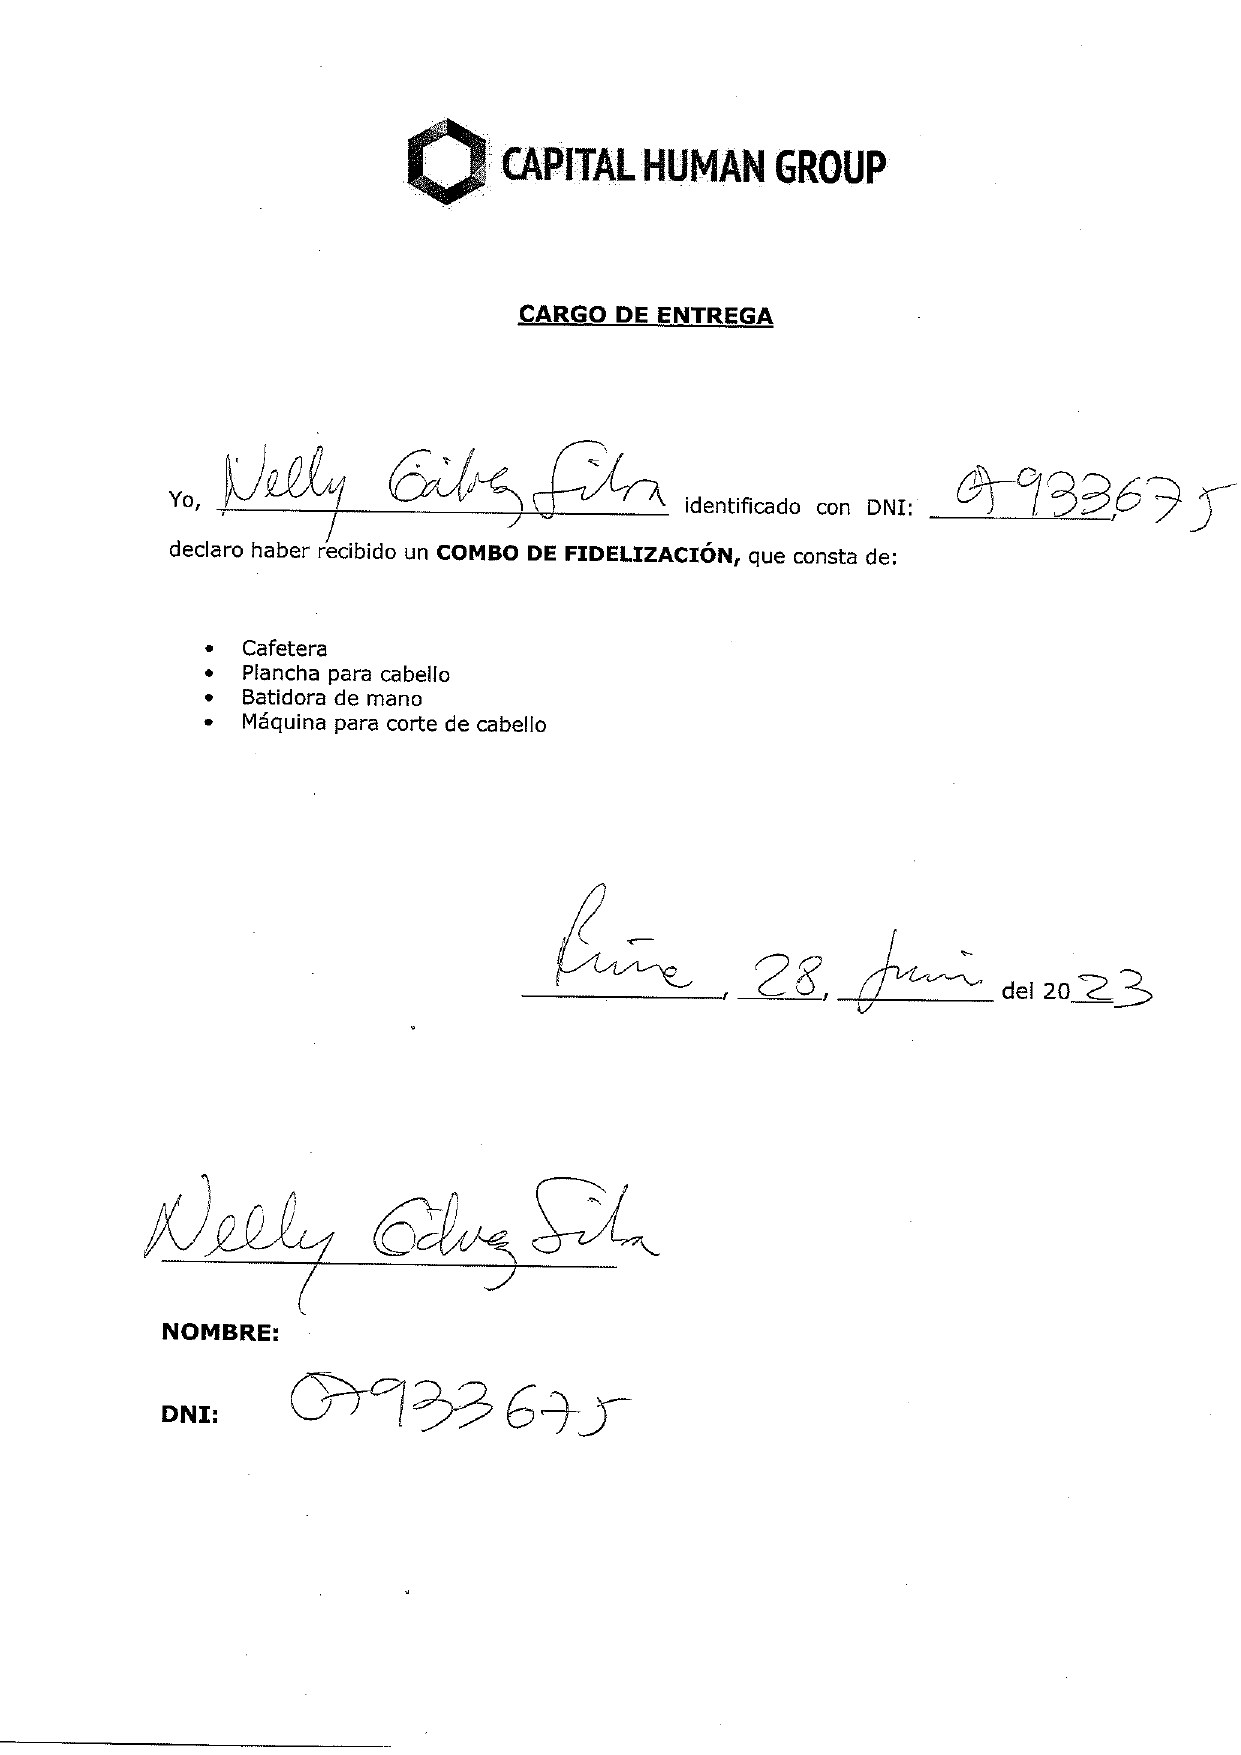 CAPITAL HUMAN GROUP
CARGO DE ENTREGA
Yo, Nelly Gálvez Silva identificado con DNI: 07933675
declaro haber recibido un COMBO DE FIDELIZACIÓN, que consta de:
• Cafetera
• Plancha para cabello
• Batidora de mano
• Máquina para corte de cabello
, 28, Junio del 2023
Nelly Gálvez Silva
NOMBRE:
DNI: 07933675